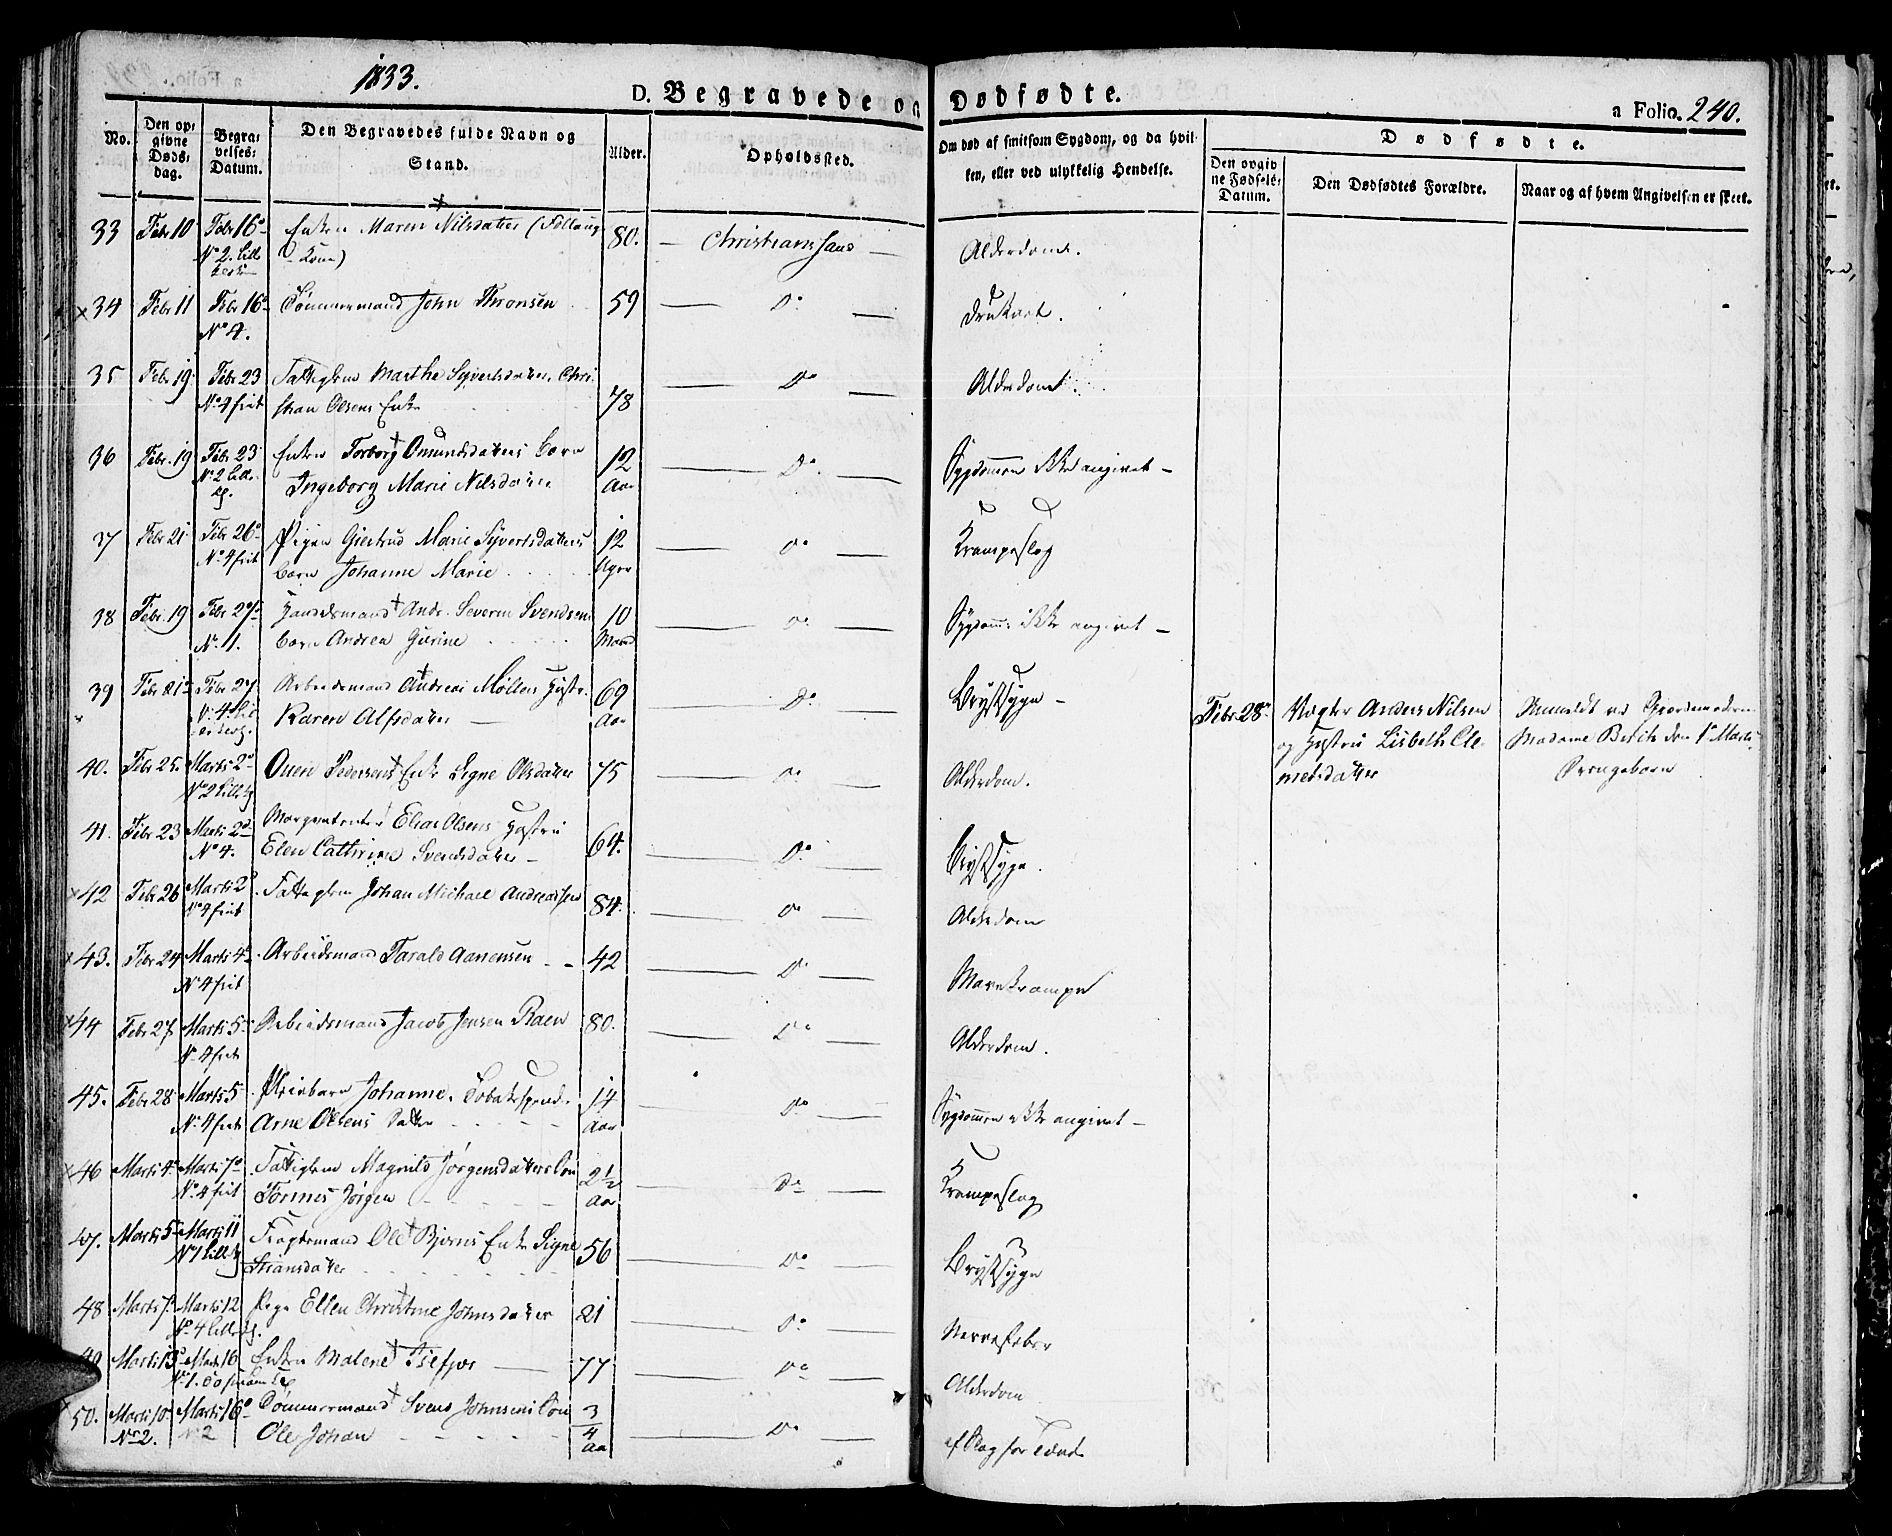 1833.
D. Begravede og Dødfødte.
a Folio. 240.
No.
Den op-
givne
Døds-
dag.
Begra-
velses-
Datum.
Den Begravedes fulde Navn og
Stand.
Alder.
Opholdssted.
Om død af smitsom Sygdom, og da hvil-
ken, eller ved ulykkelig Hendelse.
Dødfødte.
Den opgiv
ne Fødsels-
Datum.
Den Dødfødtes Forældre.
Naar og af hvem Angivelsen er skeet.
33 Febr 10 Febr 16 Enken Maren Nilsdatter 80. Christianssand Alderdom.
No 2. Lill
Kone)
34 Febr 11 Febr 16 Tømmermand John Thronsen 59 Do
No 4.
35 Febr 19 Febr 23 Fattiglem Marthe Syvertsdatter, Chri
No 4 frit stian Olsens Enke 78 Do Alderdom.
36 Febr. 19 Febr 23 Enken Torborg Omundsdatters Barn 12 Do Sygdommen ikke angivet
No 2 Lille Ingeborg Marie Nilsdatter Aar
37 Febr 21 Febr 26 Pigen Giertrud Marie Syvertsdatters 12 Do Krampeslag
No 4 frit Barn Johanne Marie Uger
38 Febr. 19 Febr 27 Handelsmand Andr. Severin Svendsens 10 Do Sygdomme ikke angivet
No 1. Barn Andrea Maned
39 Febr 21 Febr 27 Arbeidsmand Andreas Møllers Hustr. 69 Do Brystsyge
No 4 Karen Alfsdatter Aar
Febr 28 Vægter Anders Nilsen
og Hustru Lisbeth Cle
metsdatter
Anmeldt ved Gjordemoderen
Madame Berits den 1 Marts
40. Febr 25. Marts 2 Ouen Pedersens Enke Signe Olsdatter 75 Do Alderdom.
No 2 Lille
41. Febr 23 Marts 2 Elias Olsens Hustru
No 4. Elen Cathrine Svendsdatter 64. Do Brystsyge.
42 Febr 26 Marts 2 Fattiglem Johan Michael Andreassen 84. Do Alderdom
No 4 frit
43. Febr 24 Marts 4 Arbeidsmand Tarald Aanensen 42 Do Mavekrampe
No 4 frit
44 Febr 27 Marts 5 Arbeidsmand Jacob Jensen Raen 80. Do Alderdom.
No 4 frit
45. Febr 28 Marts 5 Pleiebarn Johanne, 14 Do Sygdommen ikke angivet
No 4 frit Arne Olsens Datter Aar
46 Marts 4 Marts 7 Fattiglem Magnild Jørgensdatters Søn 2½ Do Krampeslag
No 4 frit Tormes Jørgen Aar
47. Marts 5 Marts 11 Ole Bjørns Enke Signe 56 Do Brystsyge
No 1 Lill Stiansdatter
48 Marts 7 Marts 12 Pige Ellen Christine Johnsdatter 21 Do Nervefeber
No 4 Lill
49 Marts 13 Marts 16 Enken Malene 77 Do Alderdom
No 1.
50. Marts 10 Marts 16 Tømmermand Svend Johnsens Søn 3/4 Do af Slag for Tænder
No 2. No 2 Ole Johan Aar